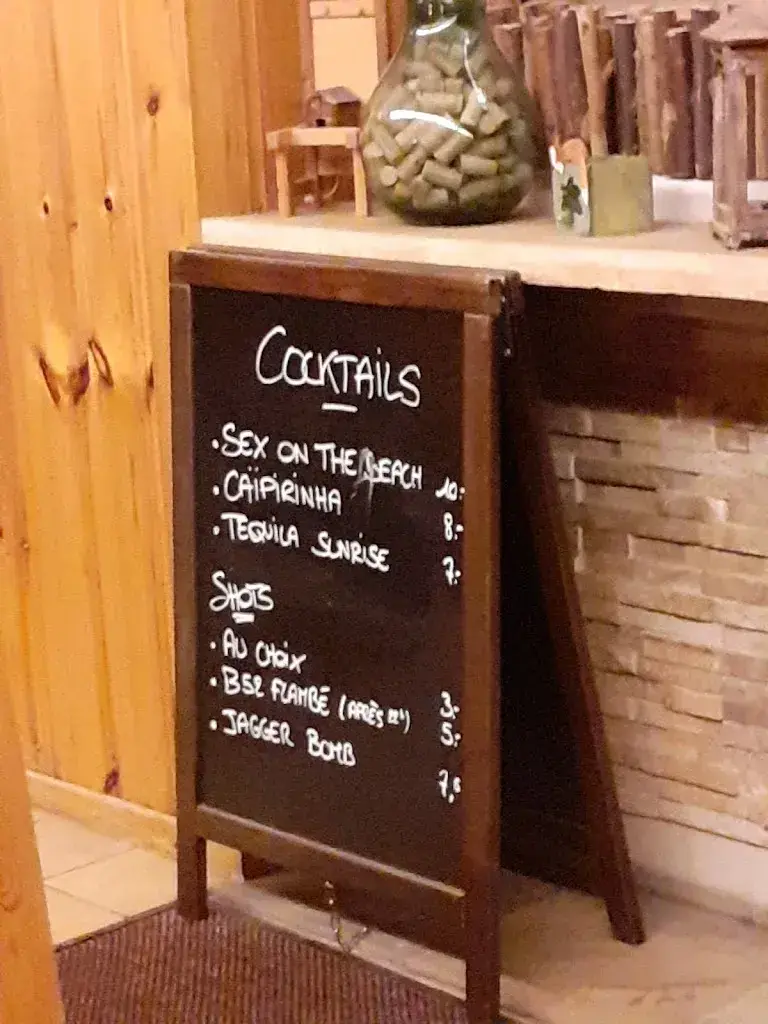 COCKTAILS
• SEX ON THE BEACH 10.-
• CAÏPIRINHA 8.-
• TEQUILA SUNRISE 7.-
SHOTS
• AU CHOIX 3.-
• B52 FLAMBÉ (APRÈS 22h) 5.-
• JAGGER BOMB 7,5